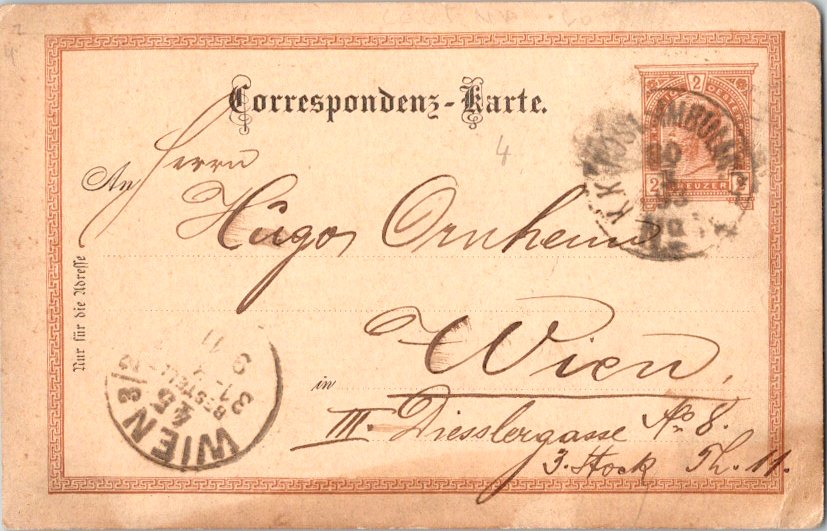 Correspondenz-Karte.
2
OESTERR
2 KREUZER 2
K.K. POSTAMBULANCE
Herrn
An
Hugo Ornheim
Nur für die Adresse
Wien,
in
III. Diesslergasse No 8.
3. Stock Th. 11.
WIEN 3/3
45
BESTELLT
4